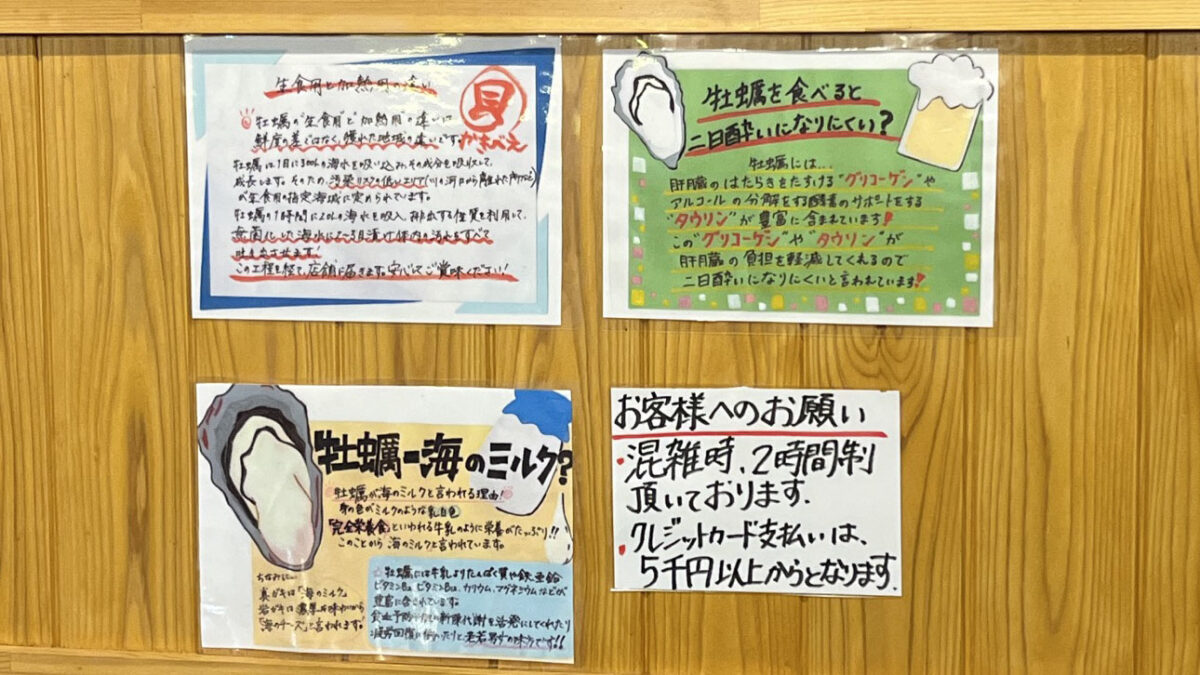 生食用と加熱用の違い
牡蠣の"生食用"と"加熱用"の違いは
鮮度の差ではなく、獲れた地域の違いです。
かきべえ
牡蠣は1日に300Lの海水を吸い込み、その成分を吸収して、
成長します。そのため、汚染リスクの低いエリア
が生食用の指定海域に定められています。
牡蠣の1時間に20Lの海水を吸入、排出する性質を利用して、
無菌にした海水に2~3日漬け体内の汚れをすべて
吐き出させます!
この工程を経て、店舗に届きます。安心してご賞味ください!
牡蠣を食べると
二日酔いになりにくい?
牡蠣には...
肝臓のはたらきをたすける"グリコーゲン"や
アルコールの分解をする酵素のサポートをする
"タウリン"が豊富に含まれています!
この"グリコーゲン"や"タウリン"が
肝臓の負担を軽減してくれるので
二日酔いになりにくいと言われています!
牡蠣=海のミルク?
牡蠣が海のミルクと言われる理由!
身の色がミルクのような乳白色
「完全栄養食」といわれる牛乳のように栄養がたっぷり!!
このことから海のミルクと言われています。
ちなみに...
真ガキは「海のミルク」
岩ガキは濃厚な味わいから
「海のチーズ」と言われます。
☆牡蠣には牛乳よりたんぱく質や鉄、亜鉛
ビタミンB2、ビタミンB12、カリウム、マグネシウムなどが
豊富に含まれています。
貧血予防や体の新陳代謝を活発にしてくれたり
疲労回復になったりと老若男女の味方です!!
お客様へのお願い
・混雑時、2時間制
頂いております。
・クレジットカード支払いは、
5千円以上からとなります。